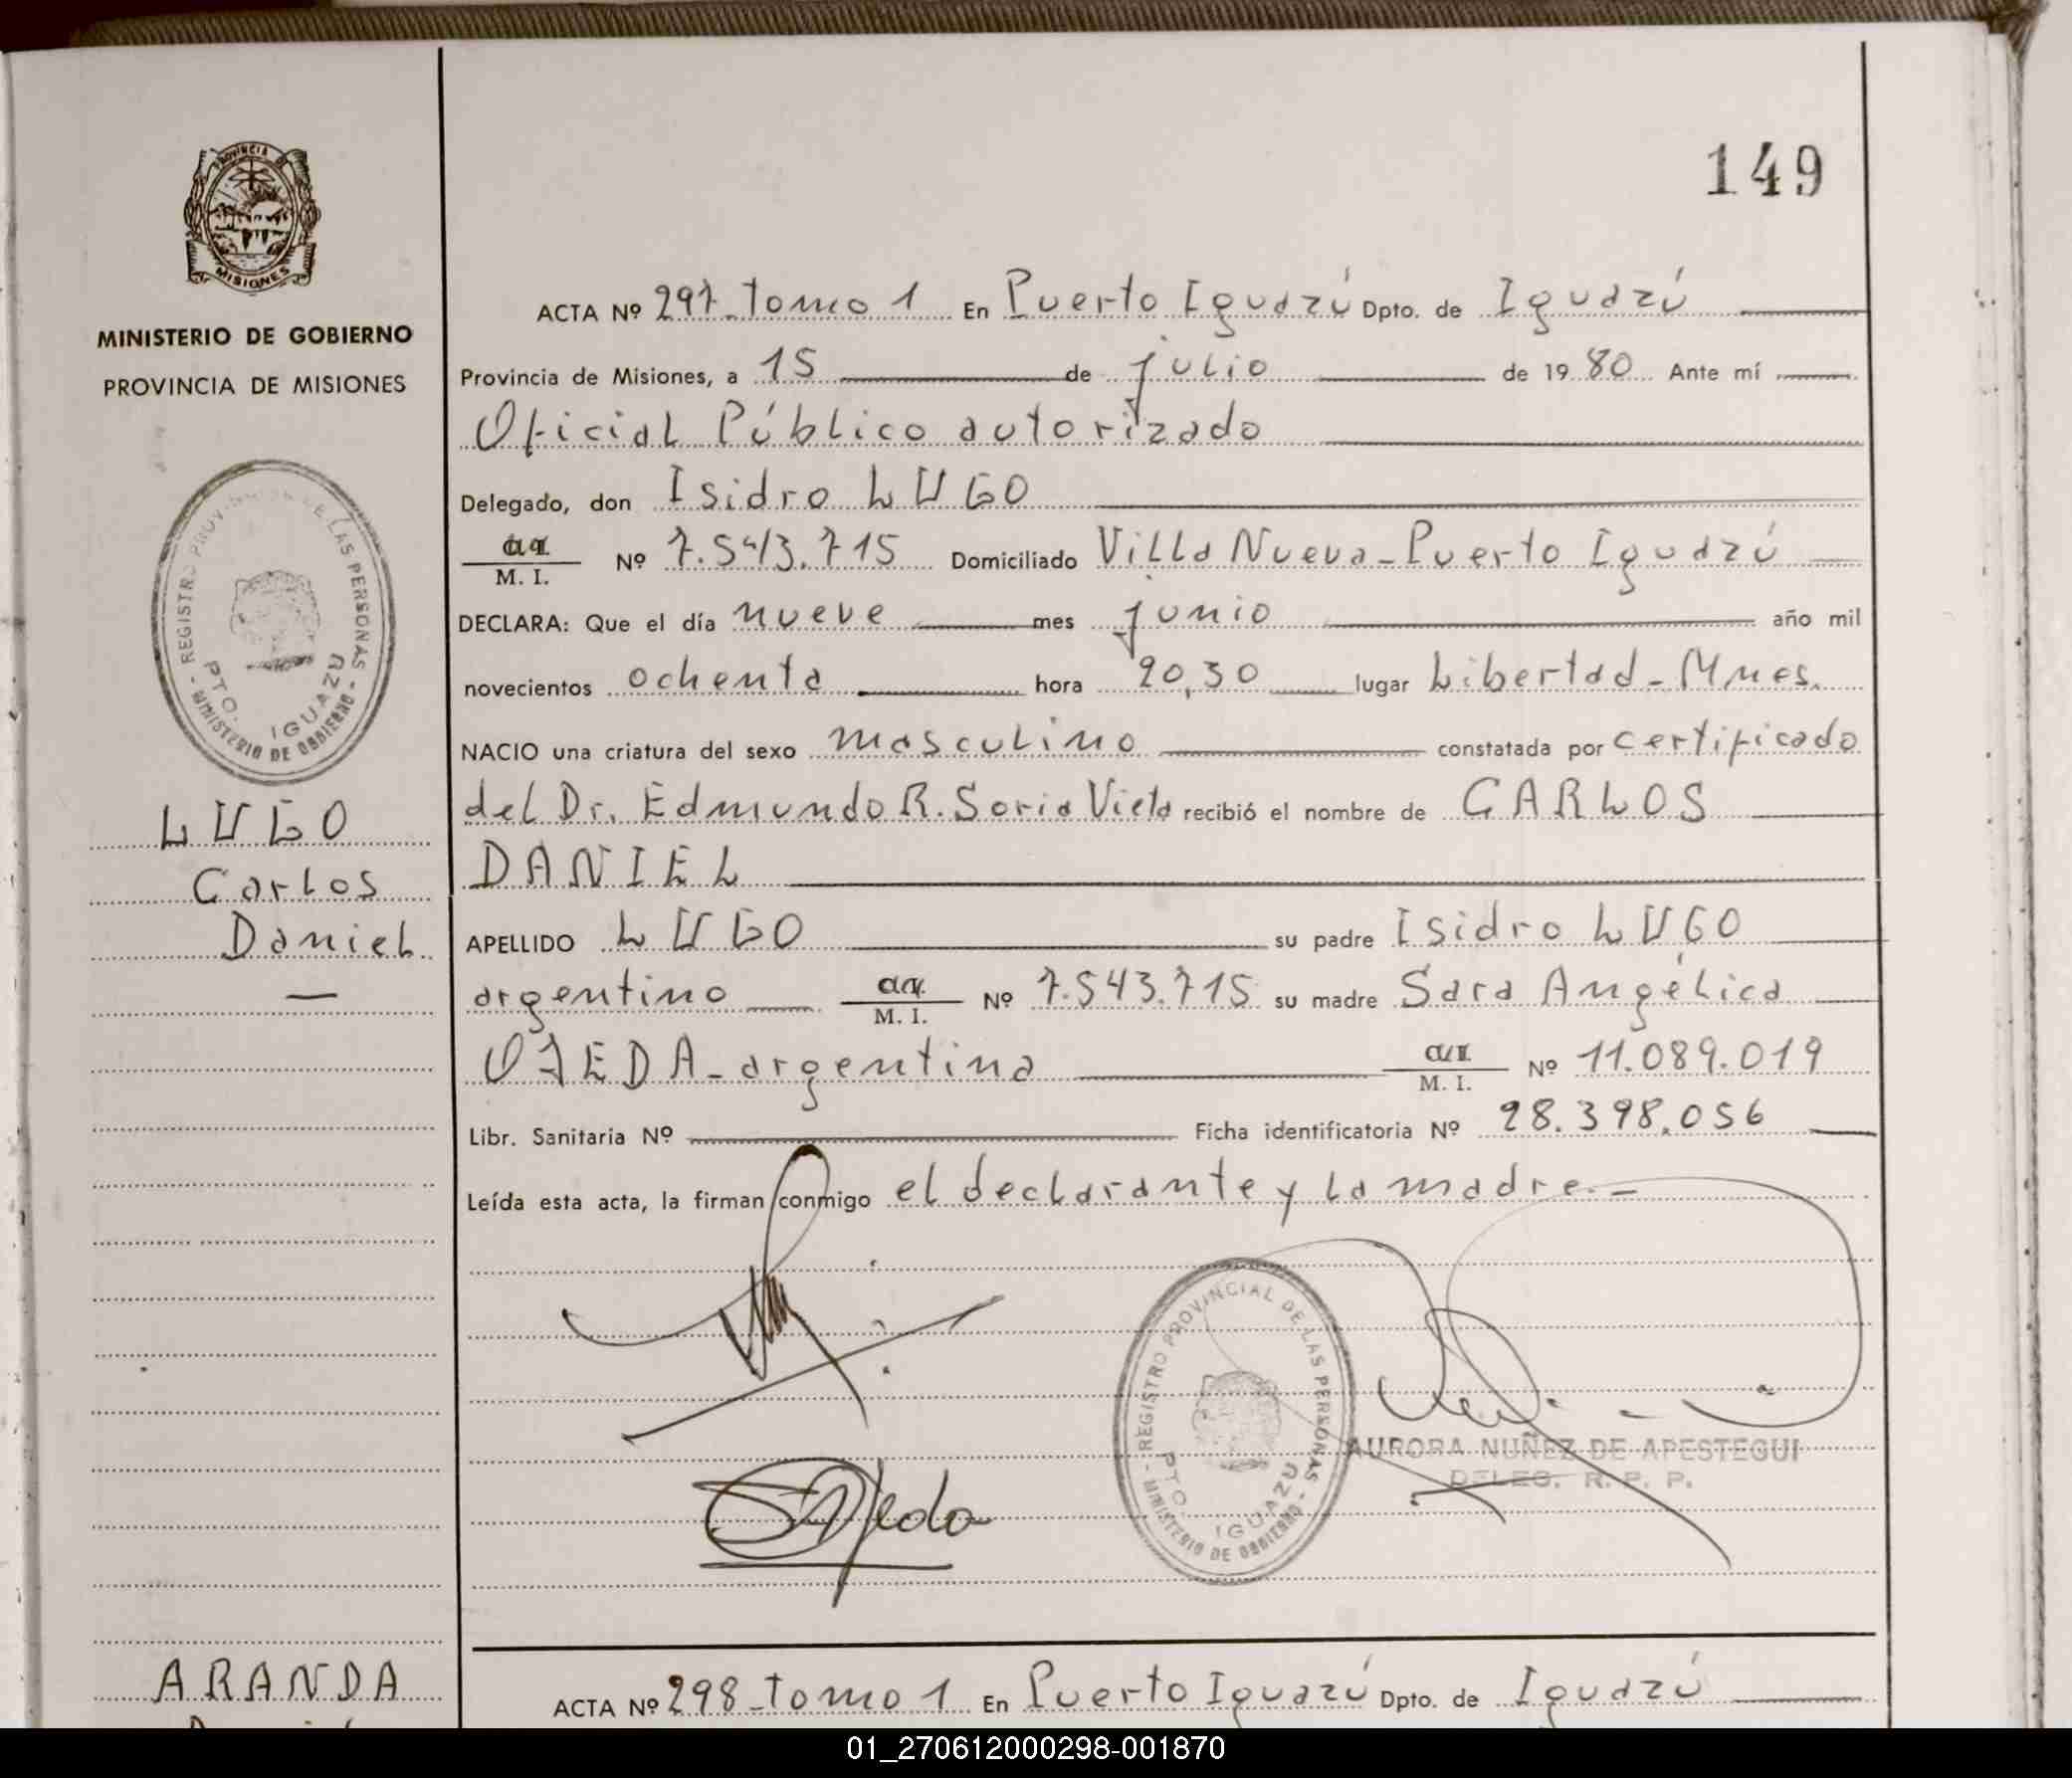 149
PROVINCIA DE
MISIONES
MINISTERIO DE GOBIERNO
PROVINCIA DE MISIONES
REGISTRO PROVINCIAL DE LAS PERSONAS
MINISTERIO DE GOBIERNO
PTO. IGUAZU
LUGO
Carlos
Daniel
ACTA Nº 297-Tomo 1 En Puerto Iguazú Dpto. de Iguazú
Provincia de Misiones, a 15 de julio de 1980 Ante mí
Oficial Público autorizado
Delegado, don Isidro LUGO
M. I. Nº 7.543.715 Domiciliado Villa Nueva-Puerto Iguazú
DECLARA: Que el día nueve mes junio año mil
novecientos ochenta hora 20,30 lugar Libertad-Mnes.
NACIO una criatura del sexo masculino constatada por certificado
del Dr. Edmundo R. Soria Vieta recibió el nombre de CARLOS
DANIEL
APELLIDO LUGO su padre Isidro LUGO
argentino M. I. Nº 7.543.715 su madre Sara Angélica
OJEDA-argentina M. I. Nº 11.089.019
Libr. Sanitaria Nº Ficha identificatoria Nº 28.398.056
Leída esta acta, la firman conmigo el declarante y la madre.-
REGISTRO PROVINCIAL DE LAS PERSONAS
MINISTERIO DE GOBIERNO
PTO. IGUAZU
AURORA NUÑEZ DE APESTEGUI
DELEG. R. P. P.
SOjeda
ARANDA
ACTA Nº 298-Tomo 1 En Puerto Iguazú Dpto. de Iguazú
01_270612000298-001870